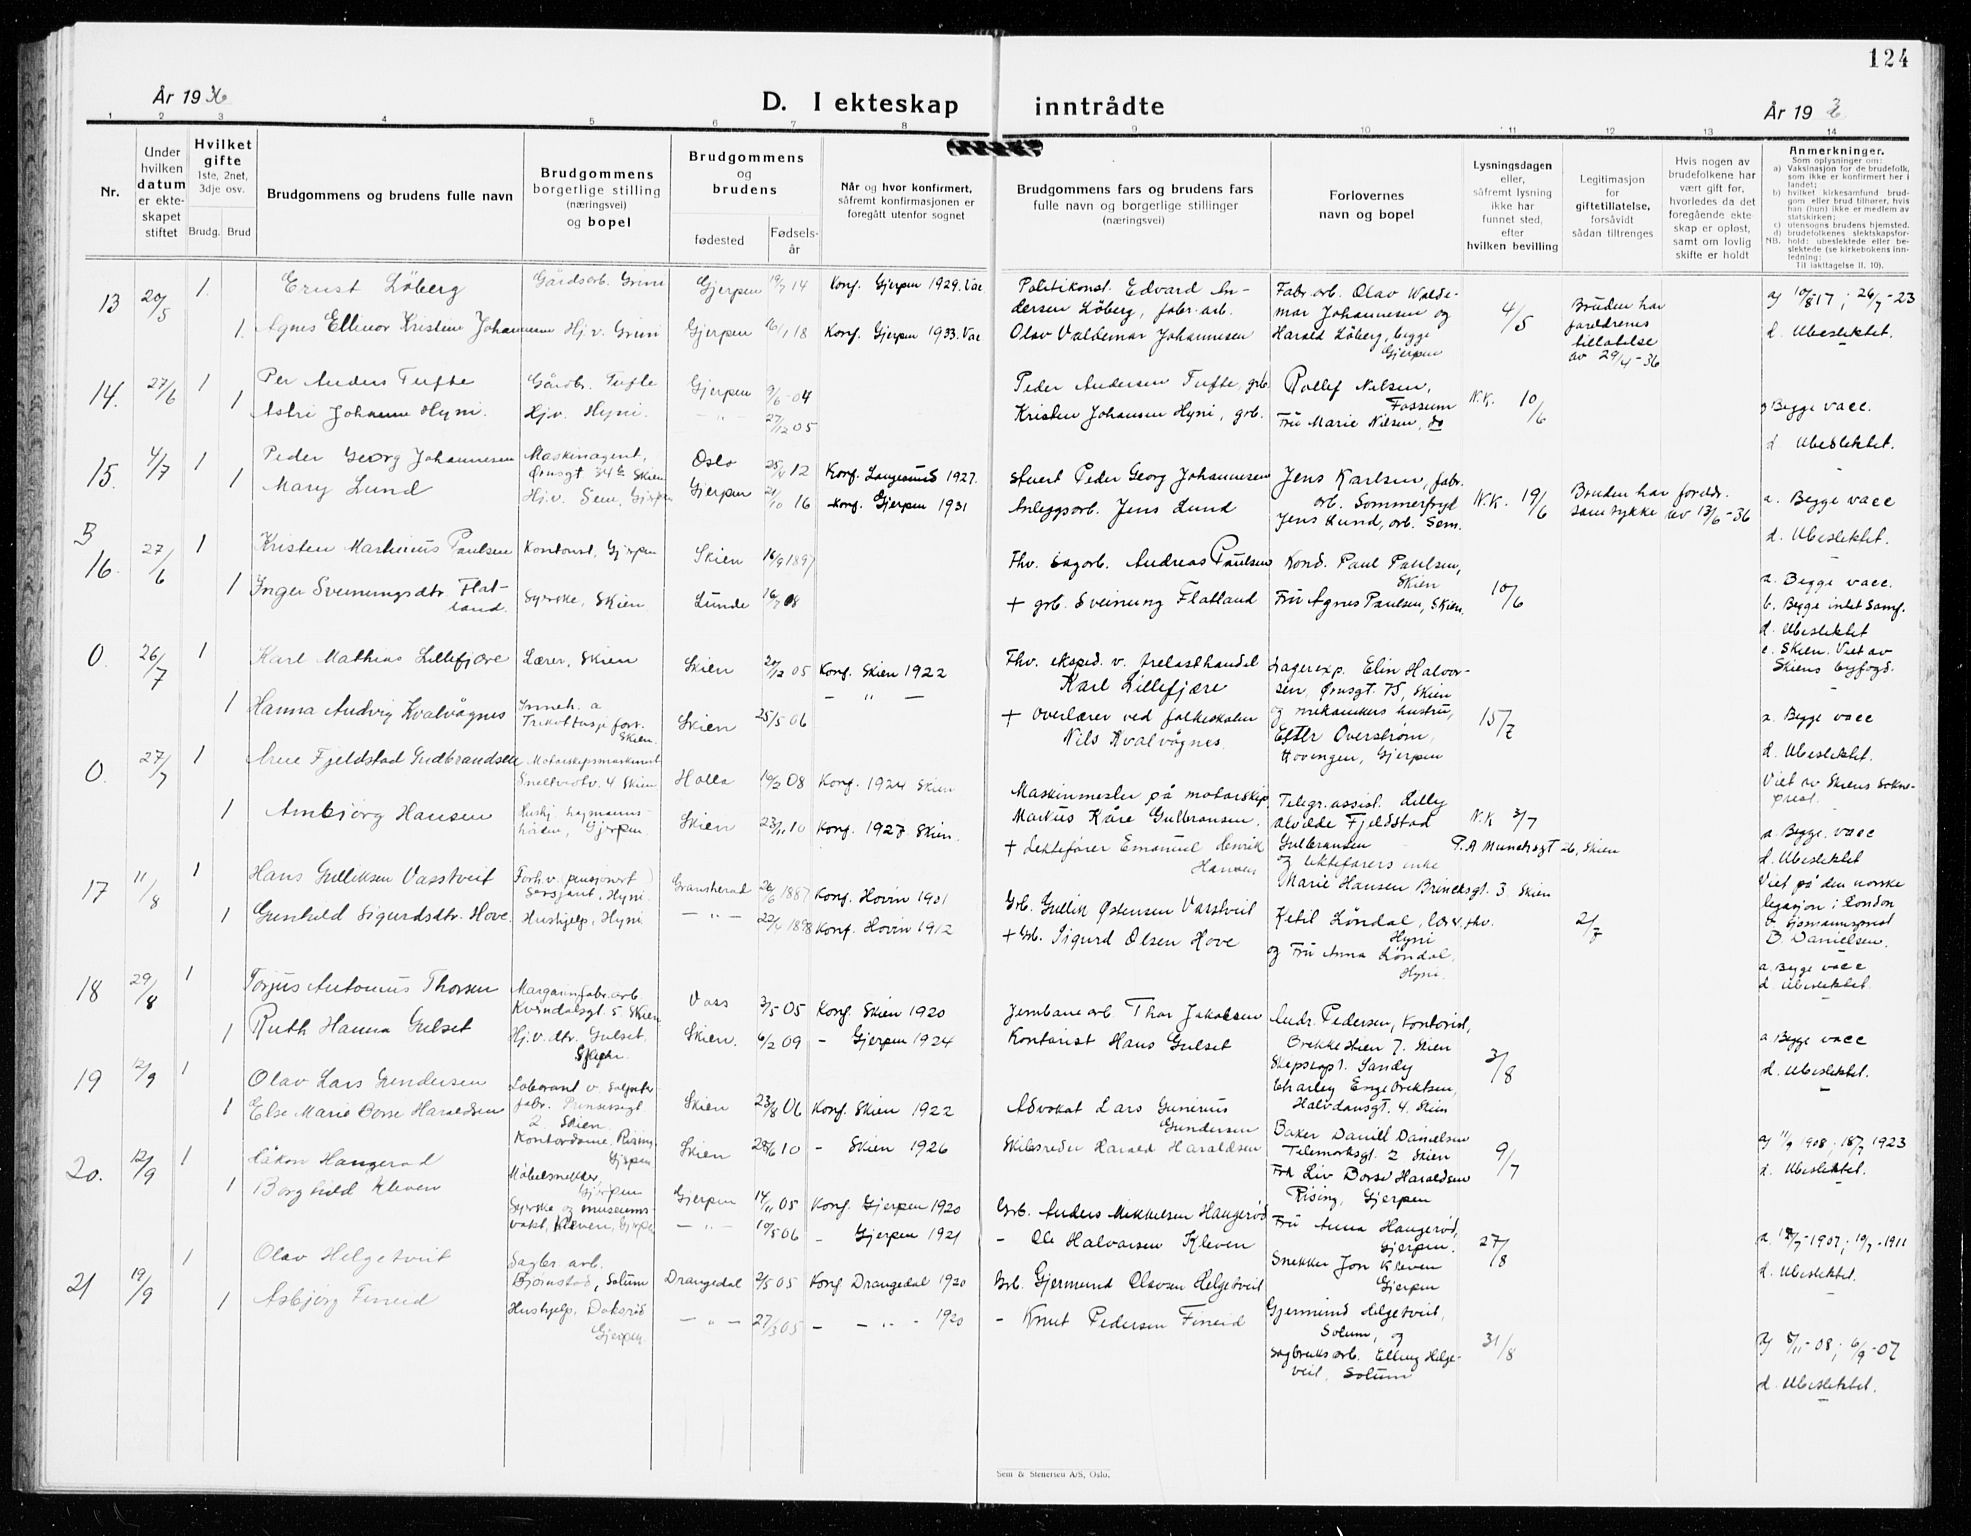 124
År 1936
D. I ekteskap inntrådte
År 193
1 2 3 4 5 6 7 8 9 10 11 12 13 14
Nr.
Under hvilken datum er ekteskapet stiftet
Hvilket gifte
1ste, 2net, 3dje osv.
Brudg. Brud
Brudgommens og brudens fulle navn
Brudgommens borgerlige stilling (næringsvei) og bopel
Brudgommens og brudens
fødested
Fødselsår
Når og hvor konfirmert, såfremt konfirmasjonen er foregått utenfor sognet
Brudgommens fars og brudens fars fulle navn og borgerlige stillinger (næringsvei)
Forlovernes navn og bopel
Lysningsdagen eller, såfremt lysning ikke har funnet sted, efter hvilken bevilling
Legitimasjon for giftetillatelse, forsåvidt sådan tiltrenges
Hvis nogen av brudefolkene har vært gift før, hvorledes da det foregående ekteskap er opløst, samt om lovlig skifte er holdt
Anmerkninger.
Som oplysninger om:
a) Vaksinasjon for de brudefolk, som ikke er konfirmert her i landet;
b) hvilket kirkesamfund brudgom eller brud tilhører, hvis han (hun) ikke er medlem av statskirken;
c) utensogns brudens hjemsted.
d) brudefolkenes slektskapsforhold: ubeslektede eller beslektede (se kirkebokens innledning;
NB. Til iakttagelse II. 10).
13 20/5 1. Ernst Löberg Gårdsarb. Grini Gjerpen 19/7 14 Konf. Gjerpen 1929. Vac Politikonst. Edvard Andersen Löberg, fabr.arb. Fabr.arb. Olav Waldemar Johannesen og Harald Löberg, begge Gjerpen 4/5 Bruden har foreldrenes tillatelse av 29/4-36 a) 10/8 17; 26/7-23
1. Agnes Ellinor Kristine Johannesen Hj.v. Grini Gjerpen 16/1 18 Konf. Gjerpen 1933. Vac Olav Valdemar Johannesen d. Ubeslektet.
14. 27/6 1 Per Anders Tufte Gårdbr. Tufte Gjerpen 9/6-04 Peder Andersen Tufte, grb. Rollef Nilsen, Fossum N.K. 10/6 a) Begge vacc.
1 Astri Johanne Hyni. Hj.v. Hyni. - " - 27/12 05 Kristen Johansen Hyni, grb. Fru Marie Nilsen, do d. Ubeslektet.
15. 4/7 1 Peder Georg Johannesen Maskinagent, Ørnsgt 34 Skien Oslo 25/4 12 Konf. Langesund 1927. Stuert Peder Georg Johannesen Jens Karlsen, fabr. arb. Sommerfryd N.K. 19/6 Bruden har foreldr. samtykke av 13/6-36 a. Begge vacc
1 Mary Lund Hj.v. Sem, Gjerpen Gjerpen 21/10 16 Konf. Gjerpen 1931 Anleggsarb. Jens Lund Jens Lund, arb. Sem. d. Ubeslektet.
B
16. 27/6 1 Kristen Martinius Paulsen Kontorist, Gjerpen Skien 16/9 1897 Fhv. sagarb. Andreas Paulsen Kond. Paul Paulsen, Skien 10/6 a. Begge vacc.
1 Inger Sveinungsdtr. Flatland. Syerske, Skien Lunde 16/7 08 + grb. Sveinung Flatland Fru Agnes Paulsen, Skien. b. Begge intet Samf.
d. Ubeslektet
c. Skien. Viet av Skiens byfogd.
0. 26/7 1 Karl Mathias Lillefjære Lærer, Skien Skien 20/12 05 Konf. Skien 1922 Fhv. eksped. v. trelasthandel Karl Lillefjære Lagerexp. Elin Halvorsen, Ørnsgt. 75, Skien
1 Hanna Audvig Kvalvågnes Inneh. a Trikotasjeforr. Skien. Skien 25/5 06 - " - + Overlærer ved folkeskolen Nils Kvalvågnes. og mekanikers hustru, Esther Overstrøm, Hovengen, Gjerpen 15/7 a. Begge vacc
d. Ubeslektet.
Viet av Skiens Sokneprest.
0. 27/7 1 Arne Fjeldstad Gudbrandsen Motorskipsmaskinist Snelltvedtv. 4 Skien Holla 10/2 08 Konf. 1924 Skien Maskinmester på motorskip Markus Kåre Gulbransen. Telegr.assist. Lilly Alvilde Fjeldstad Gulbransen N.K. 3/7
1 Ambjörg Hansen Skien 23/11 10 Konf. 1927 Skien. + Lektefører Emanuel Henrik Hansen og lektefører enke Marie Hansen Brinchsgt. 3. Skien P.A Munchsgt 26, Skien a. Begge vacc
d. Ubeslektet
Viet på den norske legasjon i London
v. sjømannsprest
B. Danielsen.
17 11/8 1 Hans Gulliksen Vasstveit Forh.v. (pensjonert) Sersjant, Hyni Gransherad 26/6 1887 Konf. Hovin 1901 Grb. Gullik Østensen Vasstveit Ketil Løndal, lærer, fhv. Hyni 2/7
1 Gunhild Sigurdsdtr. Hove. Hushjelp, Hyni - " - 22/4 1898 Konf. Hovin 1912 + Grb. Sigurd Olsen Hove og Fru Anna Løndal, Hyni. a. Begge vacc
d. Ubeslektet.
18 29/8 1 Torjus Antonius Thorsen Margarinfabr.arb. Kverndalsgt. 5 Skien Voss 3/5 05 Konf. Skien 1920 Jernbanearb Thor Jakobsen Andr. Pedersen, kontorist, Brekkestien 7. Skien
1 Ruth Hanna Gulset Hj.v. dtr. Gulset, Gjerpen. Skien. 6/2 09 - Gjerpen 1924 Kontorist Hans Gulset Skipsexp. Sandy Charley Engebretsen, Halvdansgt. 4. Skien 3/8 a Begge vacc
d. Ubeslektet.
19 12/9 1 Olav Lars Gundersen Laborant v. Salpeterfabr. Prinsensgt 2 Skien. Skien 23/8 06 Konf. Skien 1922 Advokat Lars Gunerius Gundersen Baker Daniel Danielsen Telemarksgt. 2 Skien
1 Else Marie Dorse Haraldsen Kontordame, Rising, Gjerpen Skien 28/6 10 - Skien 1926 Skibsreder Harald Haraldsen Frk Liv Dorse Haraldsen Rising, Gjerpen 9/7 a) 11/9 1908; 18/7 1923
d. Ubeslektet.
20. 12/9 1 Håkon Haugerød Möbelsnekker, Gjerpen Gjerpen 14/11 05 Konf. Gjerpen 1920 Grb. Anders Mikkelsen Haugerød Fru Anna Haugerød, Gjerpen.
1 Borghild Kleven Syerske og museumsvakt, Kleven, Gjerpen - " - 10/5 06 - Gjerpen 1921 - Ole Halvorsen Kleven Snekker Jon Kleven Gjerpen 27/8 a. 18/7-1907; 19/7-1911
d. Ubeslektet.
21 19/9 1 Olav Helgetveit Sagbr. arb. Bjørnstad, Solum Drangedal 2/5 05 Konf Drangedal 1920 Grb. Gjermund Olavsen Helgetveit Gjermund Helgetveit, Solum, og
1 Asbjörg Fineid Hushjelp, Doksrød Gjerpen - " - 27/3 05 - - " - 1920 - Knut Pedersen Fineid Sagbruksarb. Elling Helgetveit, Solum 31/8 a) 5/11-08; 6/9-07
d. Ubeslektet.
Sem & Stenersen A/S, Oslo.